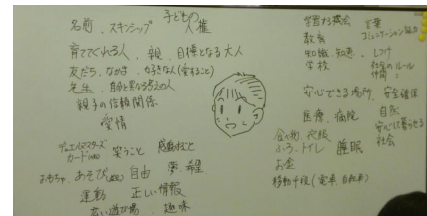 子どもの
人権
名前、スキンシップ
育ててくれる人、親、目標となる大人
友だち、なかま、(愛すること)
先生、自分と異なる考えの人
親子の信頼関係
愛情
デュエルマスターズ
カード 笑うこと 感動すること
おもちゃ あそび 自由 夢 希望
運動 正しい情報
広い遊び場、趣味
学習する機会 言葉
教育 コミュニケーション能力
知識、知恵、しつけ
学校 社会のルール
仲間
安心できる場所、安全確保
医療、病院 自然
食べ物 衣服 安心して暮らせる
ふろ、トイレ 睡眠 社会
お金
移動手段(電車、自転車)